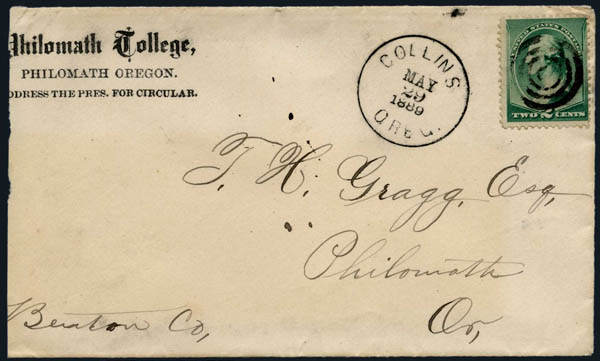 Philomath College,
PHILOMATH OREGON.
ADDRESS THE PRES. FOR CIRCULAR.
COLLINS
MAY
29
1889
OREG.
UNITED STATES POSTAGE
TWO 2 CENTS
T. H. Gragg, Esq,
Philomath
Benton Co,
Or,